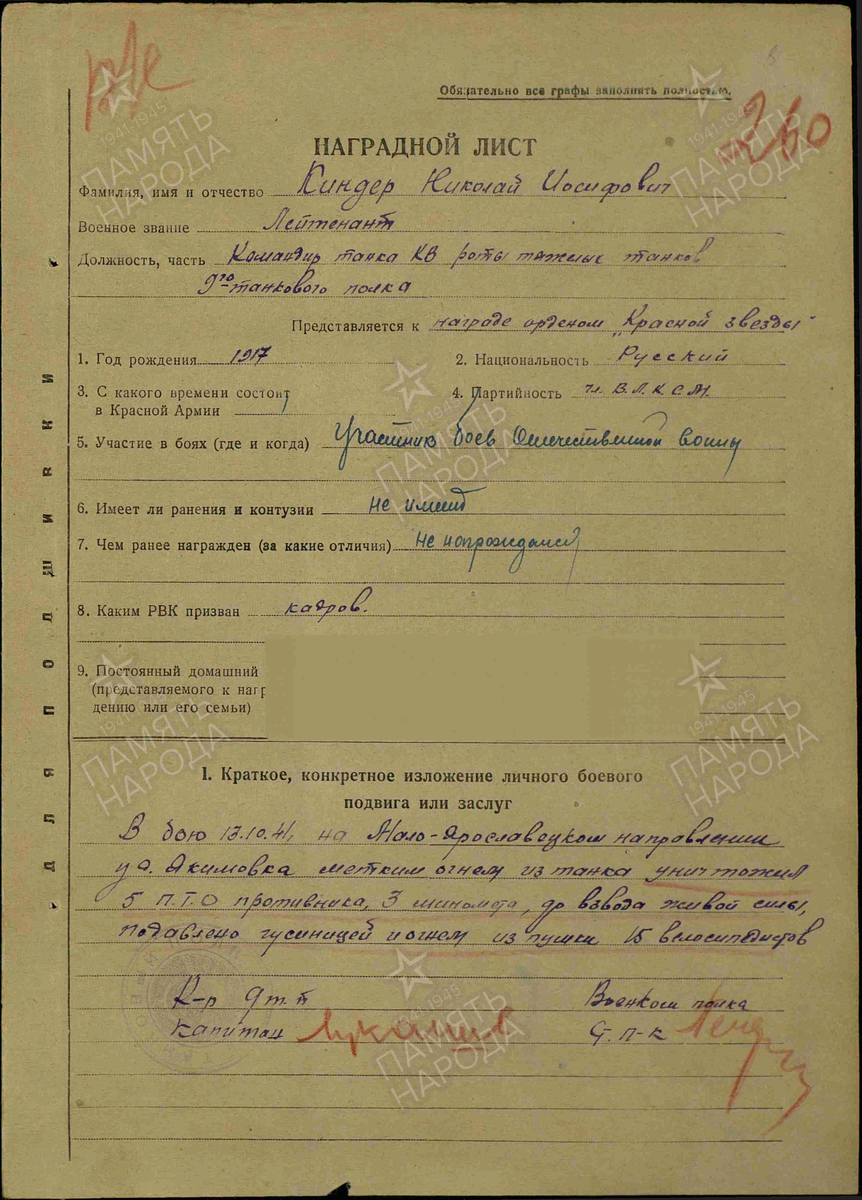 Обязательно все графы заполнять полностью.
260
НАГРАДНОЙ ЛИСТ
Фамилия, имя и отчество Киндер Николай Иосифович
Военное звание Лейтенант
Должность, часть Командир танка КВ роты тяжелых танков
9го танкового полка
Представляется к награде орденом "Красной звезды"
1. Год рождения 1917 2. Национальность Русский
3. С какого времени состоит
в Красной Армии
4. Партийность чл. В.Л.К.С.М.
5. Участие в боях (где и когда) Участник боев Отечественной войны
6. Имеет ли ранения и контузии не имеет
7. Чем ранее награжден (за какие отличия) не награждался
8. Каким РВК призван кадров.
9. Постоянный домашний
(представляемого к наг
дению или его семьи)
ДЛЯ ПОДШИВКИ
I. Краткое, конкретное изложение личного боевого
подвига или заслуг
В бою 13.10.41 на Мало-Ярославецком направлении
у д. Акимовка метким огнем из танка уничтожил
5 П.Т.О противника, 3 миномета, до взвода живой силы,
подавлено гусиницей и огнем из пушки 15 велосипедистов
К-р 9 т.п Военком полка
Капитан Ст. п-к
1941-1945
ПАМЯТЬ
НАРОДА